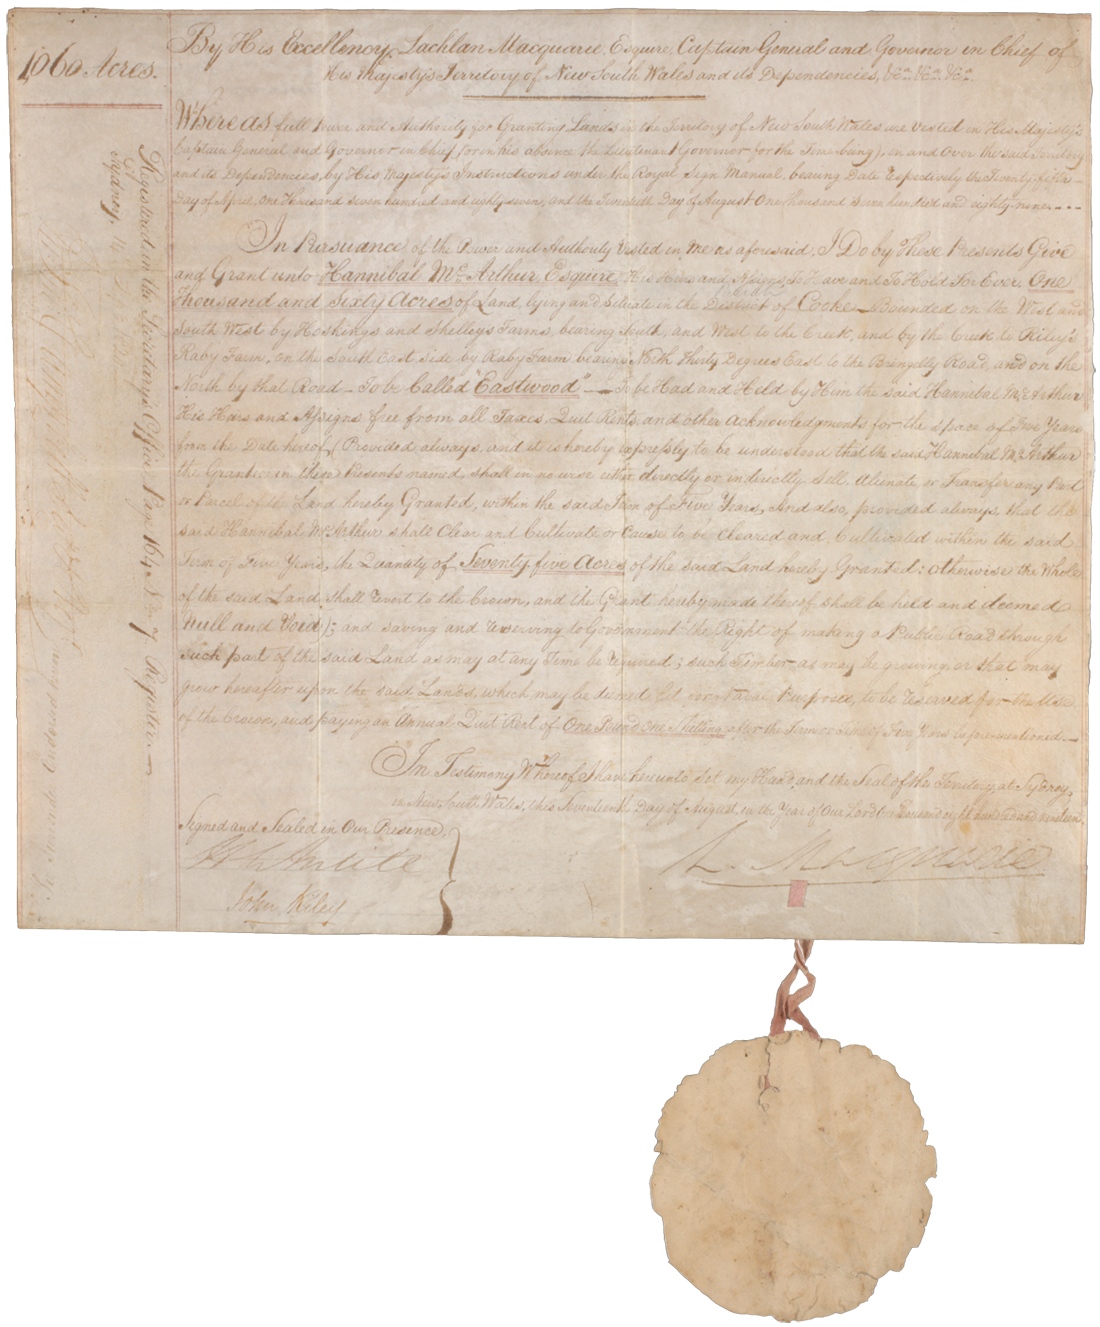 1060 Acres.
By His Excellency Lachlan Macquarie, Esquire, Captain General and Governor in Chief of
His Majesty's Territory of New South Wales and its Dependencies, &ca. &ca. &ca.
Whereas full Power and Authority for Granting Lands in the Territory of New South Wales are vested in His Majesty's
Captain General and Governor in Chief (or in his absence the Lieutenant Governor for the Time being), in and Over the said Territory
and its Dependencies, by His Majesty's Instructions under the Royal Sign Manual, bearing Date Respectively the Twenty fifth
Day of April, One Thousand seven hundred and eighty seven, and the Twentieth Day of August One thousand seven hundred and eighty nine
In Pursuance of the Power and Authority Vested in Me as aforesaid, I Do by These Presents Give
and Grant unto Hannibal Mc.Arthur, Esquire, His Heirs and Assigns, To Have and To Hold For Ever, One
Thousand and Sixty Acres of Land, lying and Situate in the District of Cooke Bounded on the West and
South West by Hoskings and Shelleys Farms, bearing South, and West to the Creek, and by the Creek to Riley's
Raby Farm, on the South East side by Raby Farm bearing North thirty Degrees East to the Bringelly Road, and on the
North by that Road — To be Called "Eastwood" — To be Had and Held by Him the said Hannibal Mc.Arthur
His Heirs and Assigns free from all Taxes, Quit Rents, and other Acknowledgments for the space of Five Years
from the Date hereof (Provided always, and it is hereby expressly to be understood that the said Hannibal Mc.Arthur
the Grantee in these Presents named shall in no wise either directly or indirectly Sell, Alienate or Transfer any Part
or Parcel of the Land hereby Granted, within the said Term of Five Years, And also, provided always, that the
said Hannibal Mc.Arthur shall Clear and Cultivate or Cause to be Cleared and Cultivated within the said
Term of Five Years, the Quantity of Seventy five Acres of the said Land hereby Granted: otherwise the Whole
of the said Land shall revert to the Crown, and the Grant hereby made thereof, shall be held and deemed
Null and Void); and saving and reserving to Government the Right of making a Public Road through
such part of the said Land as may at any Time be required; such Timber as may be growing or that may
grow hereafter upon the said Lands, which may be deemed fit for Naval Purposes, to be reserved for the Use
of the Crown, and paying an Annual Quit Rent of One Pound One Shilling after the Term or Time of Five Years before mentioned.
In Testimony Whereof I have hereunto set my Hand, and the Seal of the Territory, at Sydney,
in New South Wales, this Seventeenth Day of August, in the Year of Our Lord One thousand eight hundred and nineteen.
Signed and Sealed in Our Presence,
L. Macquarie
John Riley
Registered in the Secretary's Office, Page 164 No. 7 Register
at Sydney,